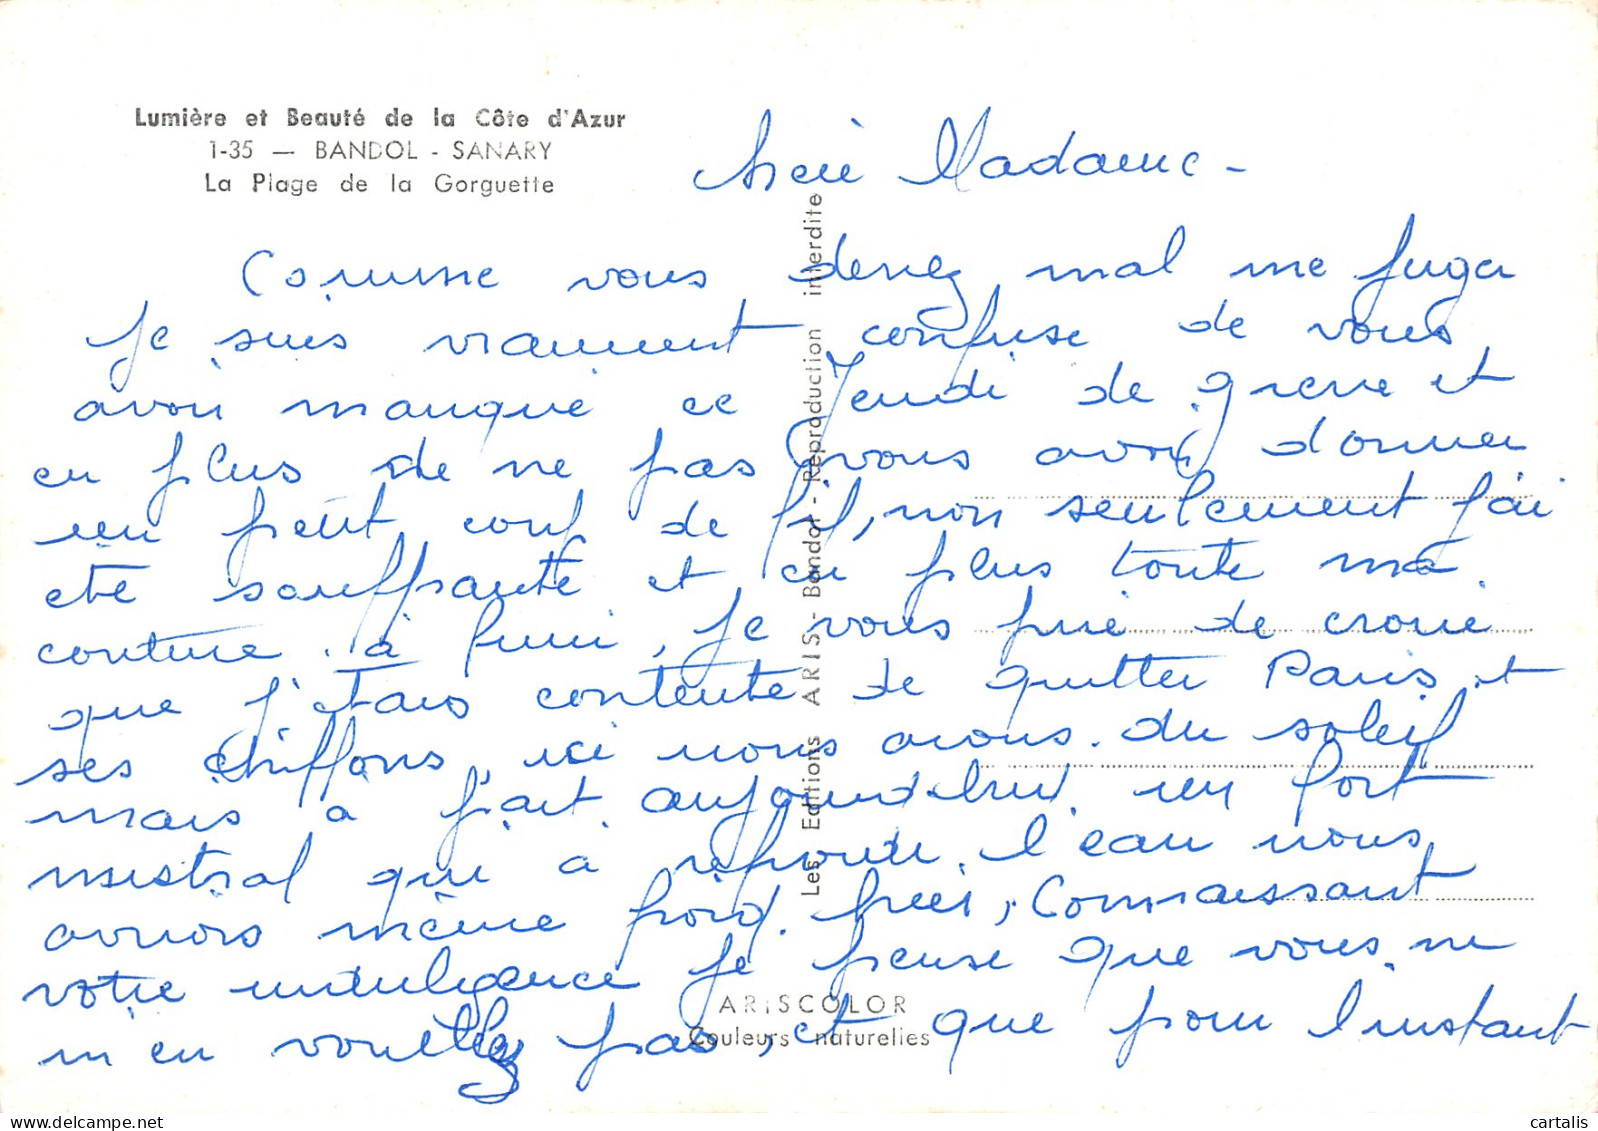 Lumière et Beauté de la Côte d'Azur
1-35 — BANDOL - SANARY
La Plage de la Gorguette
Chère Madame -
Comme vous devez mal me juger
Je suis vraiment confuse de vous
avoir manqué ce Jeudi de grève et
en plus de ne pas vous avoir donner
un petit coup de fil, non seulement j'ai
été souffrante et en plus toute ma
couture à finir, Je vous prie de croire
que j'étais contente de quitter Paris et
ses chiffons, ici nous avons du soleil
mais à part aujourd'hui un fort
mistral qui a refroidi l'eau nous
avions même froid. Mais, Connaissant
votre indulgence je pense que vous ne
m'en voudrez pas, et que pour l'instant
Les Editions ARIS - Bandol - Reproduction interdite
ARISCOLOR
Couleurs naturelles
cartalis